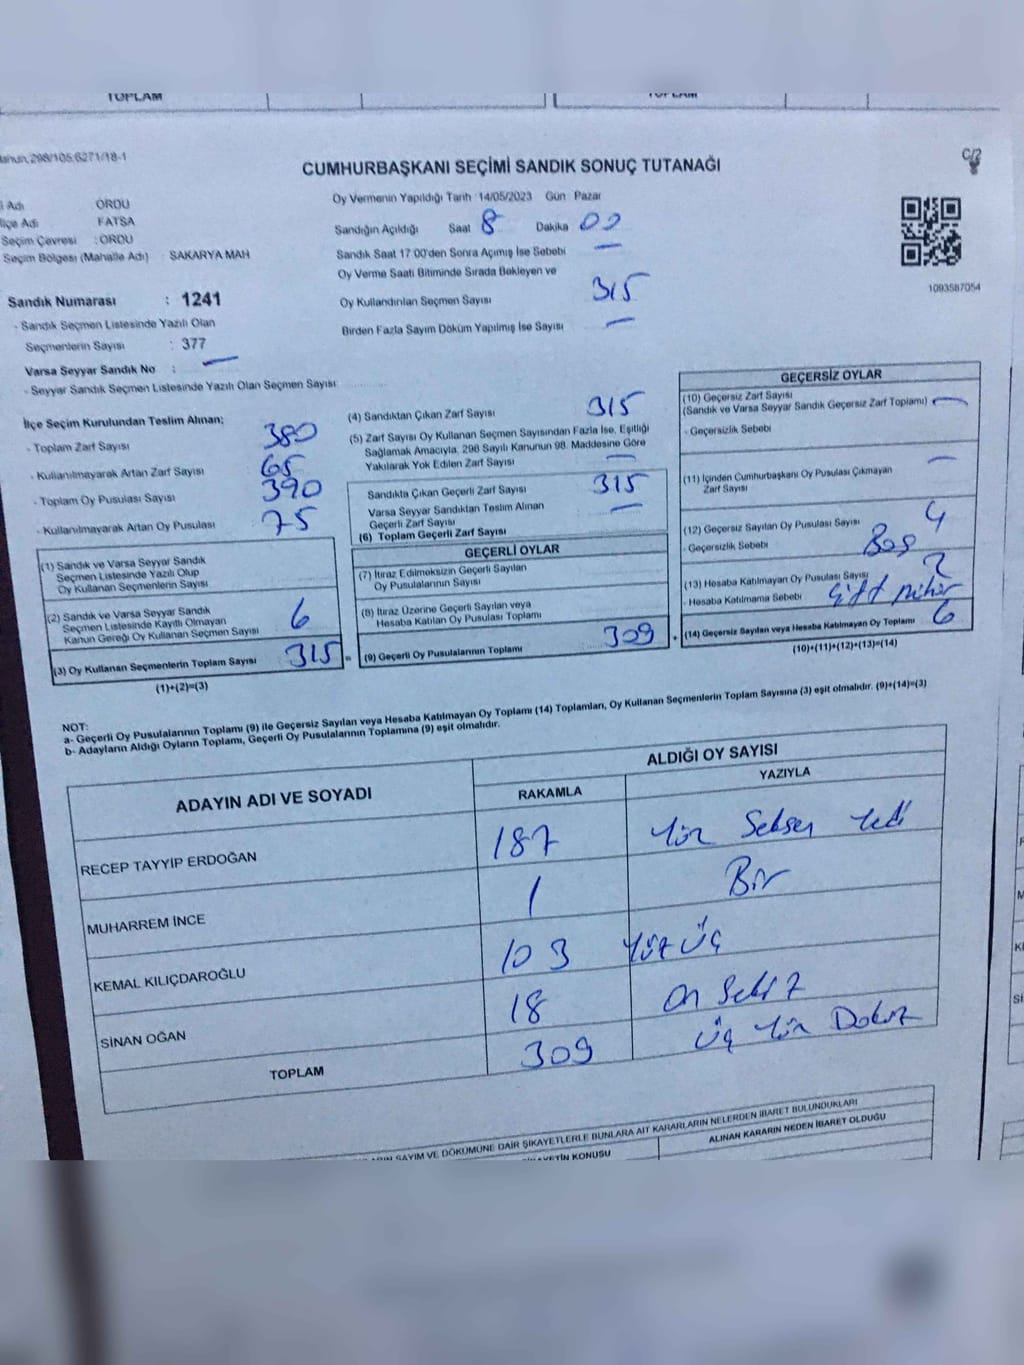 TOPLAM
298/105,6271/18-1
C/2
CUMHURBAŞKANI SEÇİMİ SANDIK SONUÇ TUTANAĞI
Adı ORDU
Adı FATSA
Seçim Çevresi : ORDU
Seçim Bölgesi (Mahalle Adı) : SAKARYA MAH
Sandık Numarası : 1241
- Sandık Seçmen Listesinde Yazılı Olan
Seçmenlerin Sayısı : 377
Varsa Seyyar Sandık No : —
- Seyyar Sandık Seçmen Listesinde Yazılı Olan Seçmen Sayısı
Oy Vermenin Yapıldığı Tarih : 14/05/2023 Gün : Pazar
Sandığın Açıldığı Saat 8 Dakika 00
Sandık Saat 17:00'den Sonra Açımış İse Sebebi —
Oy Verme Saati Bitiminde Sırada Bekleyen ve
Oy Kullandırılan Seçmen Sayısı 315
Birden Fazla Sayım Döküm Yapılmış İse Sayısı —
1093587054
İlçe Seçim Kurulundan Teslim Alınan;
- Toplam Zarf Sayısı 380
- Kullanılmayarak Artan Zarf Sayısı 65
- Toplam Oy Pusulası Sayısı 390
- Kullanılmayarak Artan Oy Pusulası 75
(1) Sandık ve Varsa Seyyar Sandık
Seçmen Listesinde Yazılı Olup
Oy Kullanan Seçmenlerin Sayısı
(2) Sandık ve Varsa Seyyar Sandık
Seçmen Listesinde Kayıtlı Olmayan
Kanun Gereği Oy Kullanan Seçmen Sayısı 6
(3) Oy Kullanan Seçmenlerin Toplam Sayısı 315 =
(1)+(2)=(3)
(4) Sandıktan Çıkan Zarf Sayısı 315
(5) Zarf Sayısı Oy Kullanan Seçmen Sayısından Fazla İse, Eşitliği
Sağlamak Amacıyla, 298 Sayılı Kanunun 98. Maddesine Göre
Yakılarak Yok Edilen Zarf Sayısı —
Sandıkta Çıkan Geçerli Zarf Sayısı 315
Varsa Seyyar Sandıktan Teslim Alınan
Geçerli Zarf Sayısı —
(6) Toplam Geçerli Zarf Sayısı
GEÇERLİ OYLAR
(7) İtiraz Edilmeksizin Geçerli Sayılan
Oy Pusulalarının Sayısı
(8) İtiraz Üzerine Geçerli Sayılan veya
Hesaba Katılan Oy Pusulası Toplamı
(9) Geçerli Oy Pusulalarının Toplamı 309 +
GEÇERSİZ OYLAR
(10) Geçersiz Zarf Sayısı
(Sandık ve Varsa Seyyar Sandık Geçersiz Zarf Toplamı) —
- Geçersizlik Sebebi
(11) İçinden Cumhurbaşkanı Oy Pusulası Çıkmayan
Zarf Sayısı —
(12) Geçersiz Sayılan Oy Pusulası Sayısı 4
- Geçersizlik Sebebi Boş
(13) Hesaba Katılmayan Oy Pusulası Sayısı 2
- Hesaba Katılmama Sebebi Çift mühür
(14) Geçersiz Sayılan veya Hesaba Katılmayan Oy Toplamı 6
(10)+(11)+(12)+(13)=(14)
NOT:
a- Geçerli Oy Pusulalarının Toplamı (9) ile Geçersiz Sayılan veya Hesaba Katılmayan Oy Toplamı (14) Toplamları, Oy Kullanan Seçmenlerin Toplam Sayısına (3) eşit olmalıdır. (9)+(14)=(3)
b- Adayların Aldığı Oyların Toplamı, Geçerli Oy Pusulalarının Toplamına (9) eşit olmalıdır.
ADAYIN ADI VE SOYADI
ALDIĞI OY SAYISI
RAKAMLA YAZIYLA
RECEP TAYYİP ERDOĞAN 187 Yüz Seksen Yedi
MUHARREM İNCE 1 Bir
KEMAL KILIÇDAROĞLU 103 Yüz Üç
SİNAN OĞAN 18 On Sekiz
TOPLAM 309 Üç Yüz Dokuz
SAYIM VE DÖKÜMÜNE DAİR ŞİKAYETLERLE BUNLARA AİT KARARLARIN NELERDEN İBARET BULUNDUKLARI
KONUSU
ALINAN KARARIN NEDEN İBARET OLDUĞU